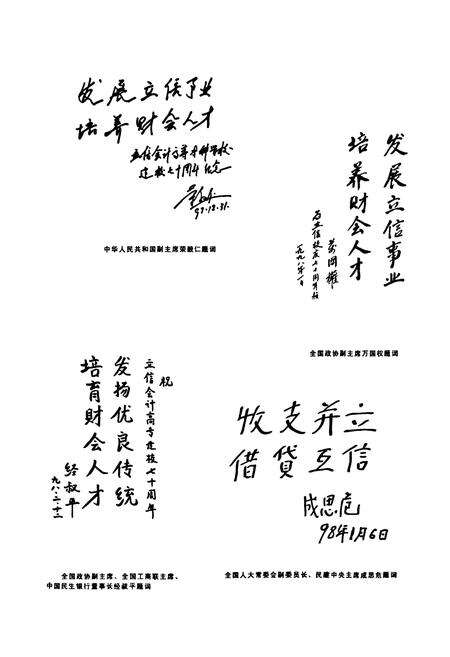 发展立信事业
培养财会人才
立信会计高等专科学校
建校七十周年纪念
97.12.31.
中华人民共和国副主席荣毅仁题词
发展立信事业
培养财会人才
为立信校庆七十周年题
万国权
一九九八年一月
全国政协副主席万国权题词
祝
立信会计高专建校七十周年
发扬优良传统
培育财会人才
经叔平
九八·二·十二
全国政协副主席、全国工商联主席、
中国民生银行董事长经叔平题词
收支并立
借貸互信
成思危
98年1月6日
全国人大常委会副委员长、民建中央主席成思危题词